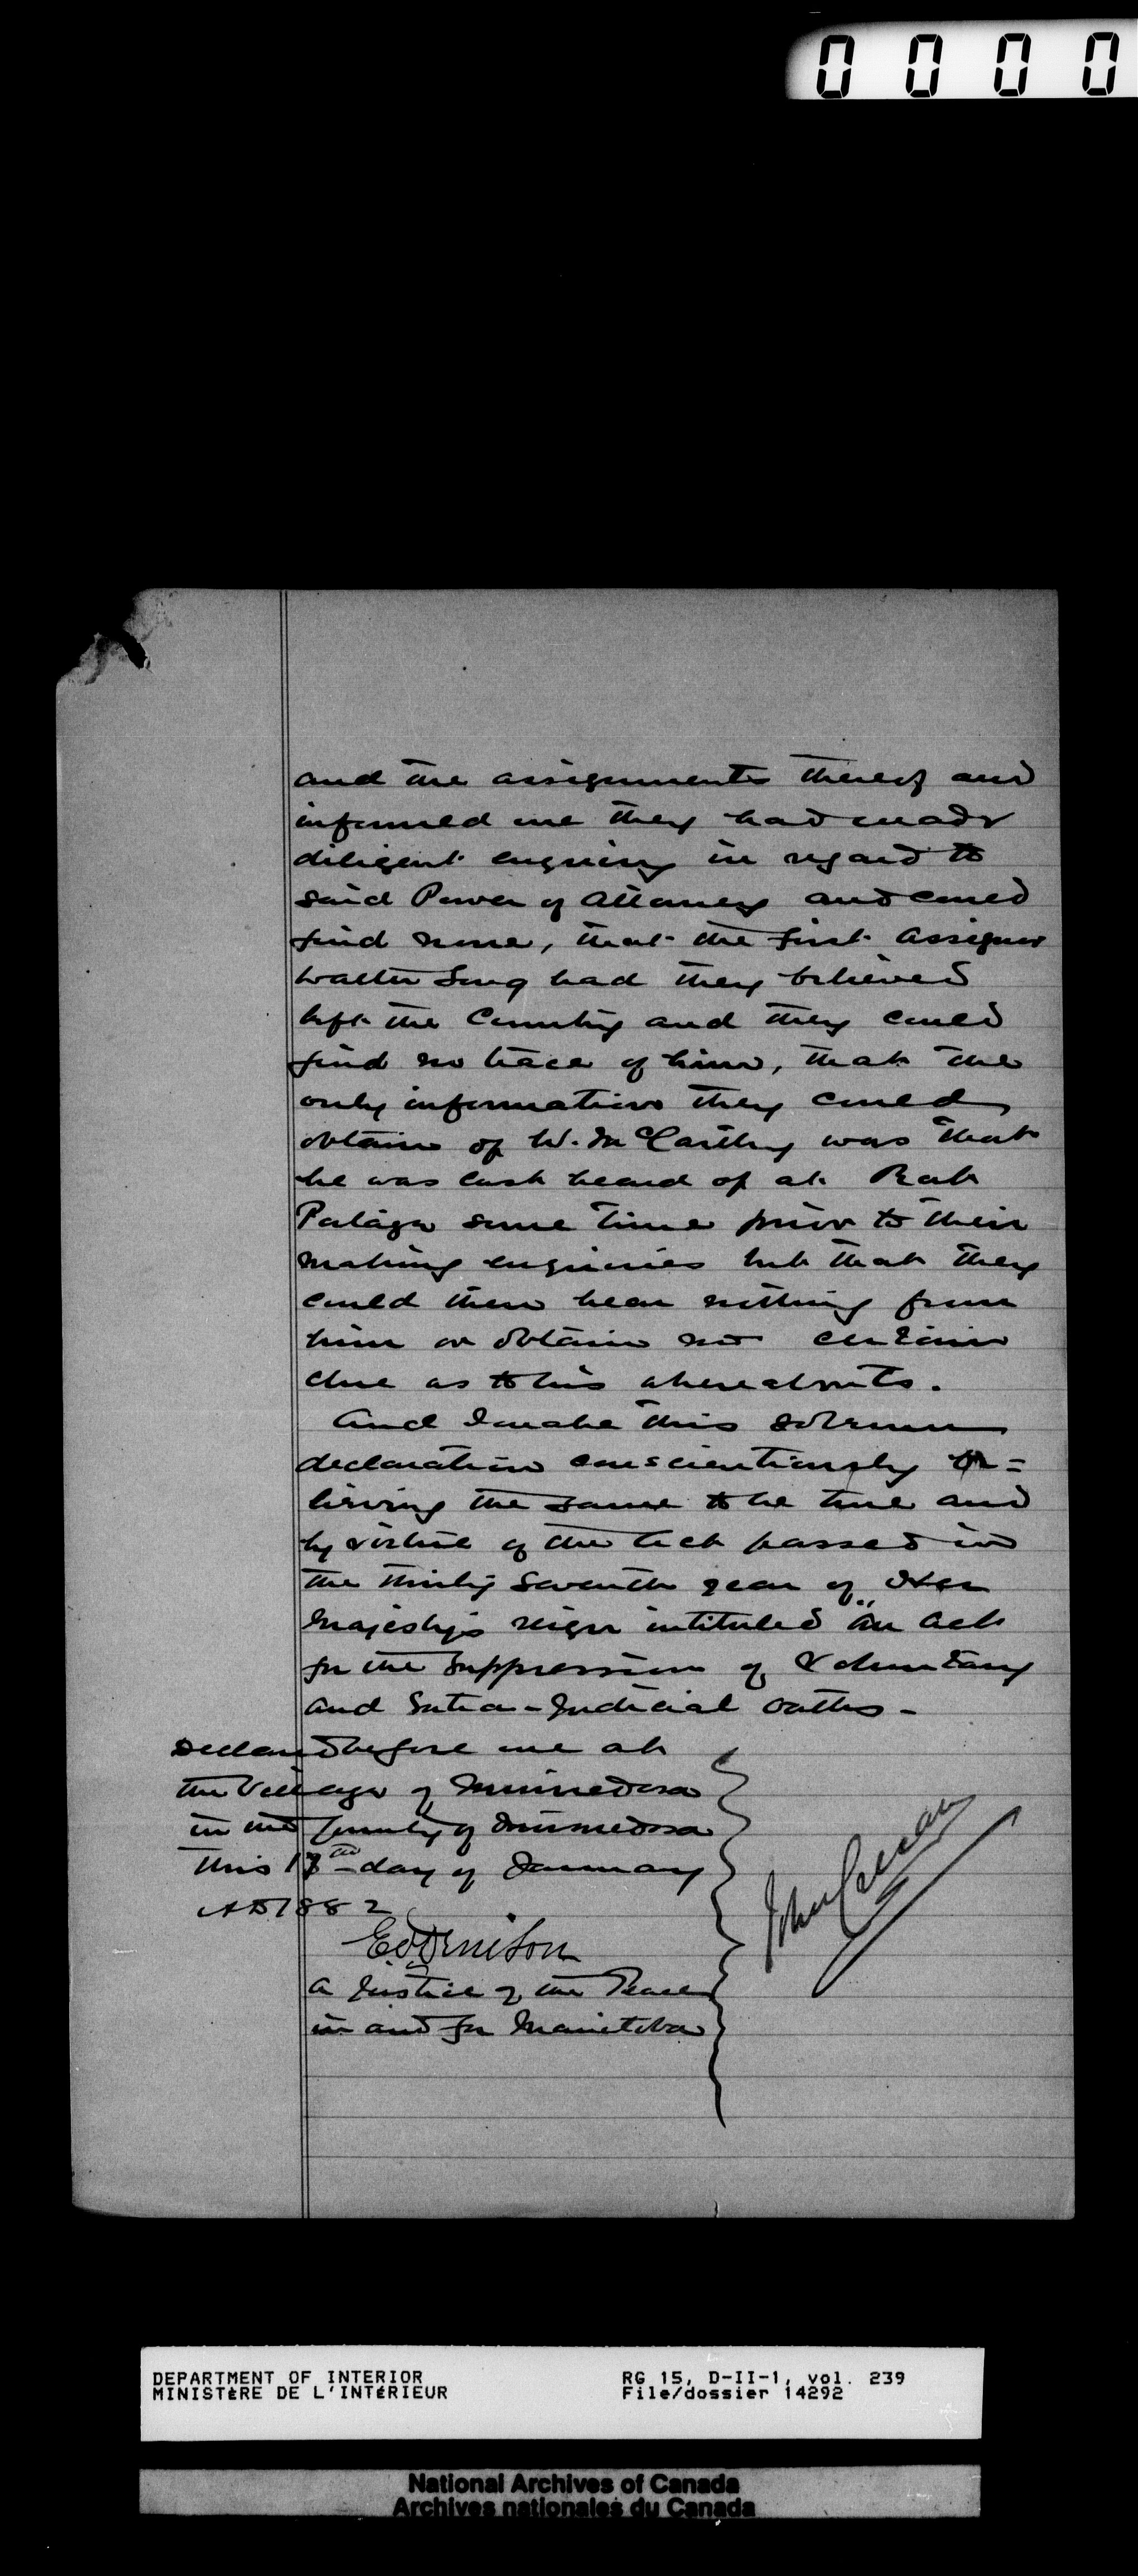 0 0 0 0
and the assignments thereof and
informed me they had made
diligent enquiry in regard to
said Power of Attorney and could
find none, that the first assignor
Walter Long had they believed
left the Country and they could
find no trace of him, that the
only information they could
obtain of W. McCarthy was that
he was last heard of at Rat
Portage some time prior to their
making enquiries but that they
could then hear nothing from
him or obtain no certain
clue as to his whereabouts.
And I make this solemn
declaration conscientiously be=
lieving the same to be true and
by virtue of the Act passed in
the thirty seventh year of Her
Majesty's reign intituled "An Act
for the Suppression of Voluntary
and Extra-Judicial oaths -
Declared before me at
the Village of Minnedosa
in the County of Minnedosa
this 18th day of January
AD 1882
Dennison
a Justice of the Peace
in and for Manitoba
John
DEPARTMENT OF INTERIOR
MINISTÈRE DE L'INTÉRIEUR
RG 15, D-II-1, vol. 239
File/dossier 14292
National Archives of Canada
Archives nationales du Canada